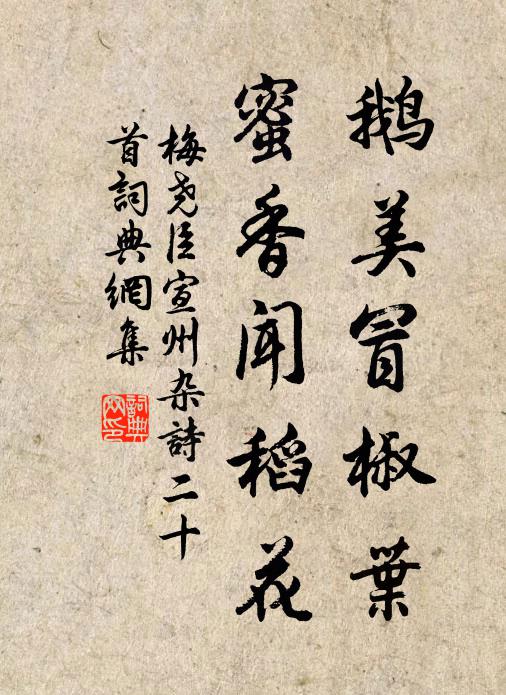 鹅美冒椒葉
蜜香聞稻花
梅尧臣宣州杂詩二十
首詞典網集
詞典
网印